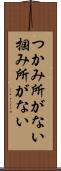 つかみ所がない
掴み所がない